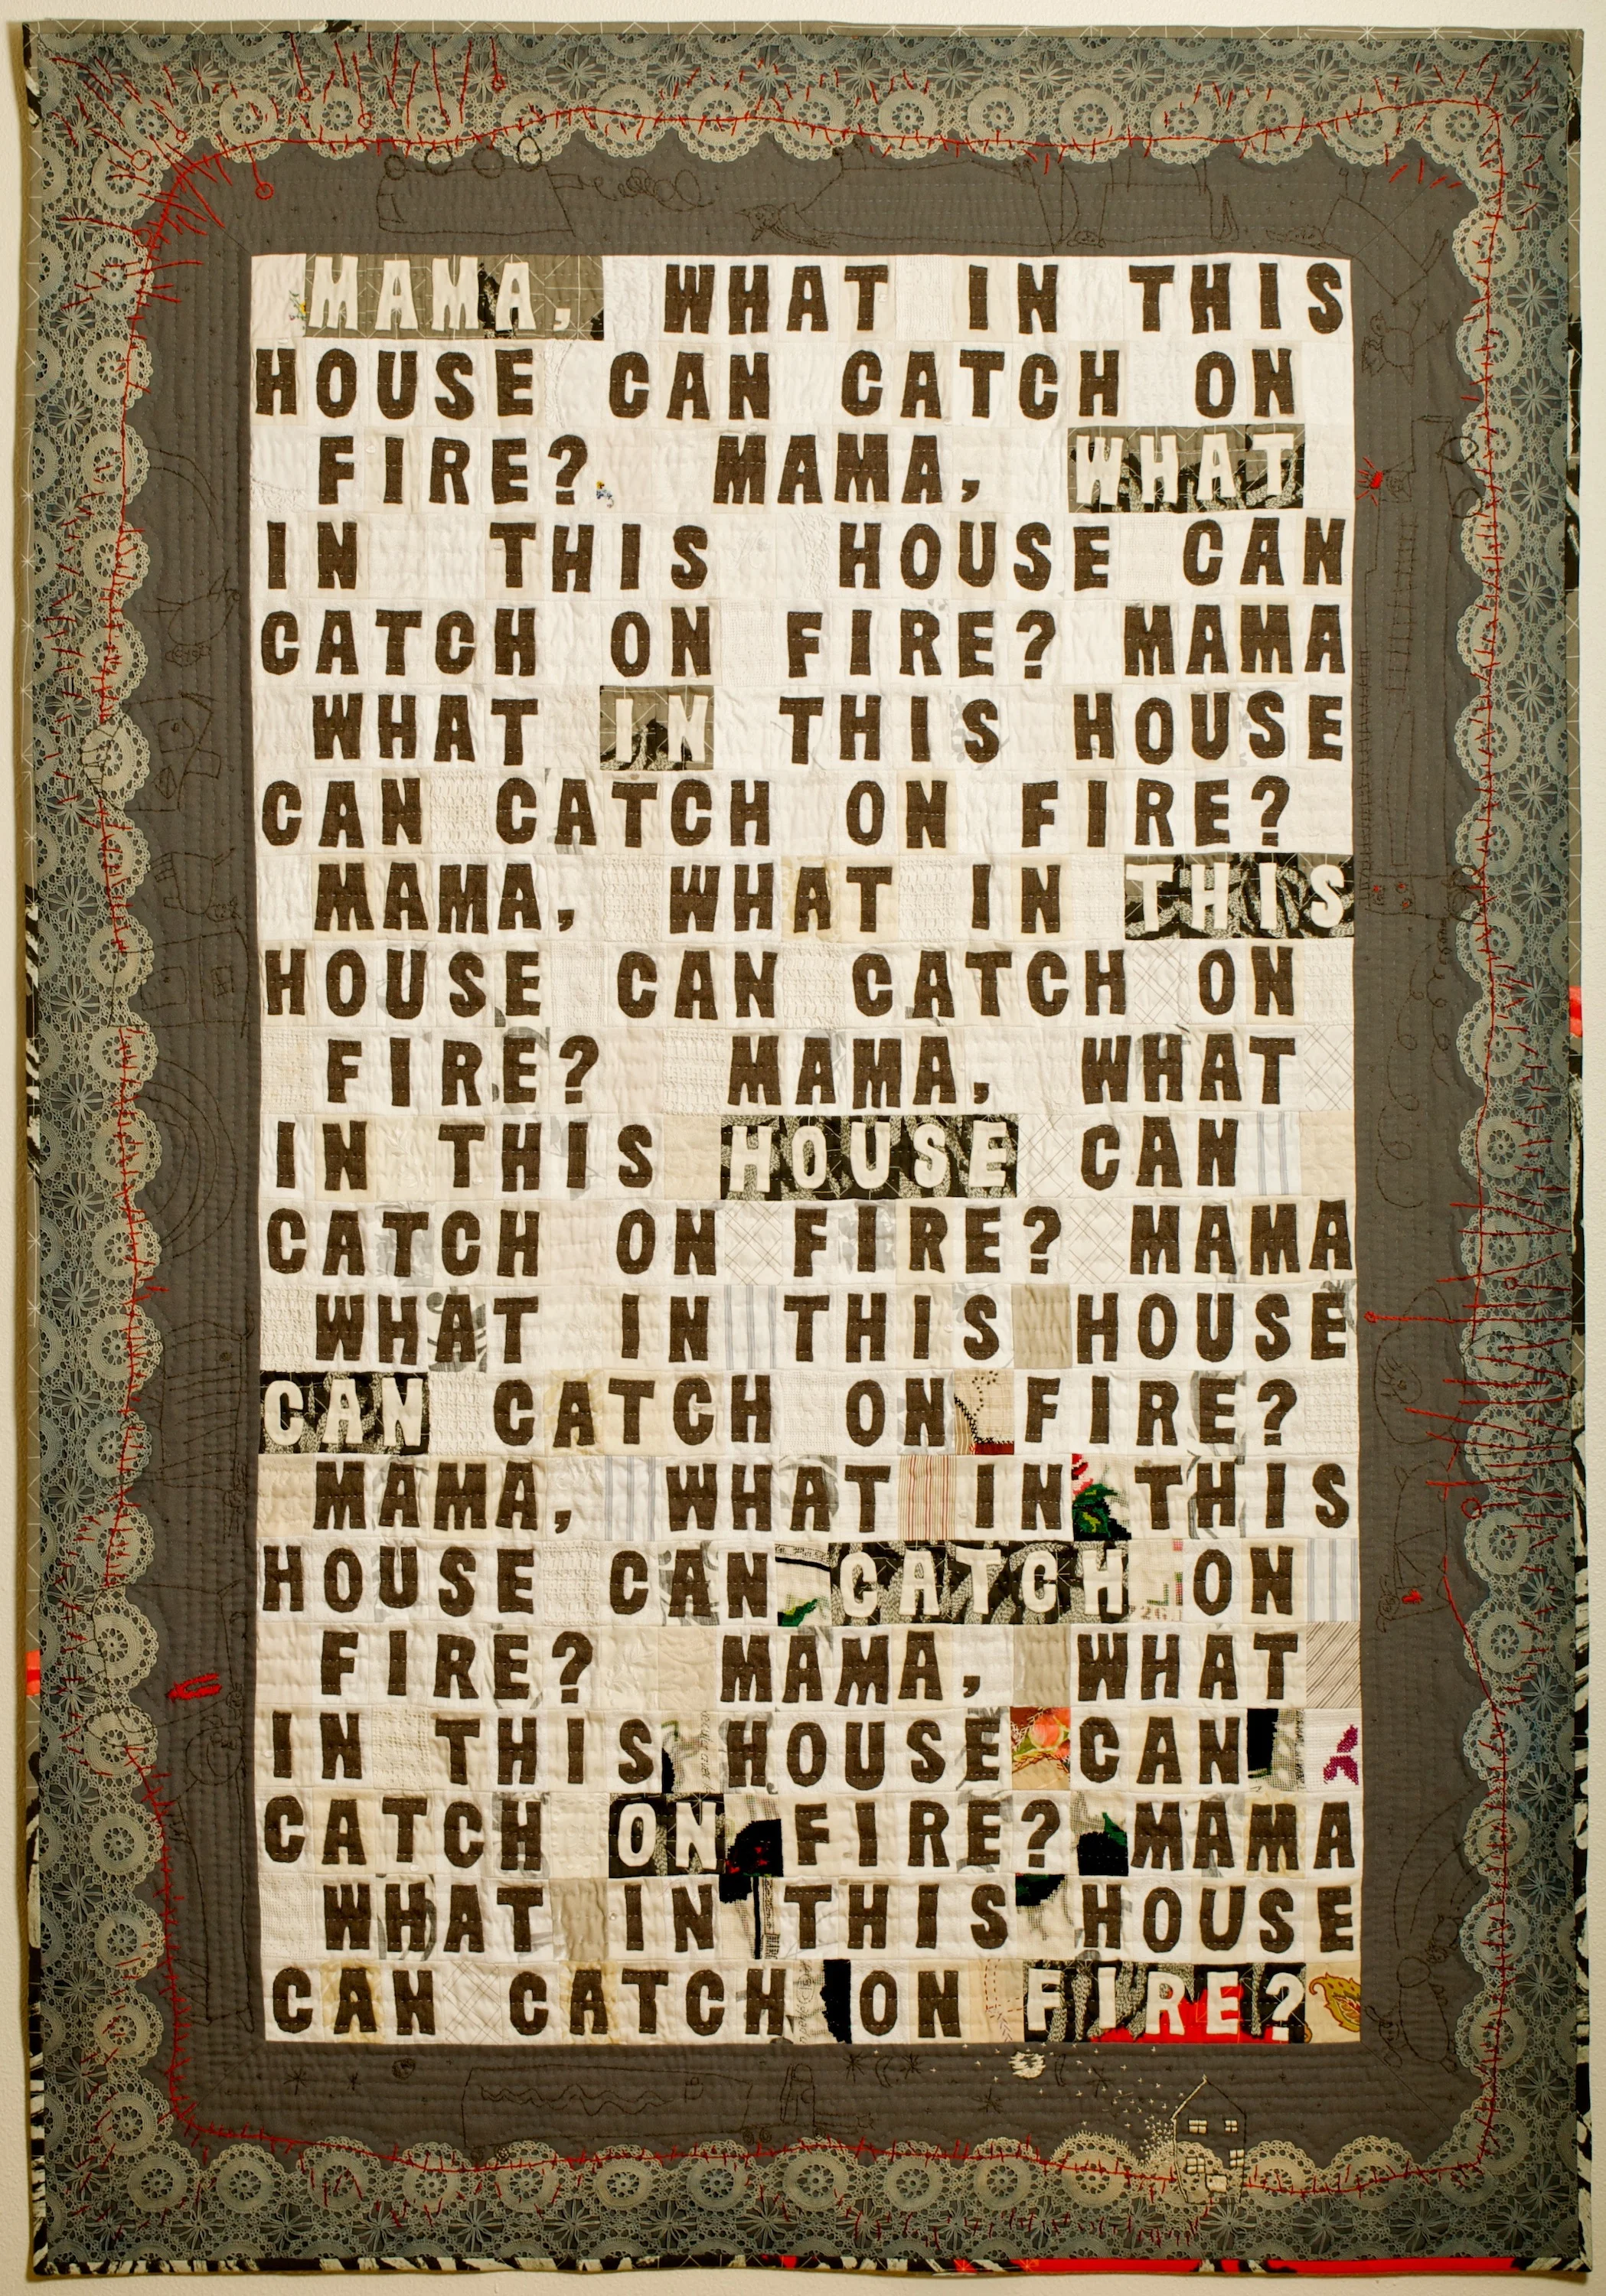 MAMA, WHAT IN THIS
HOUSE CAN CATCH ON
FIRE? MAMA, WHAT
IN THIS HOUSE CAN
CATCH ON FIRE? MAMA
WHAT IN THIS HOUSE
CAN CATCH ON FIRE?
MAMA, WHAT IN THIS
HOUSE CAN CATCH ON
FIRE? MAMA, WHAT
IN THIS HOUSE CAN
CATCH ON FIRE? MAMA
WHAT IN THIS HOUSE
CAN CATCH ON FIRE?
MAMA, WHAT IN THIS
HOUSE CAN CATCH ON
FIRE? MAMA, WHAT
IN THIS HOUSE CAN
CATCH ON FIRE? MAMA
WHAT IN THIS HOUSE
CAN CATCH ON FIRE?